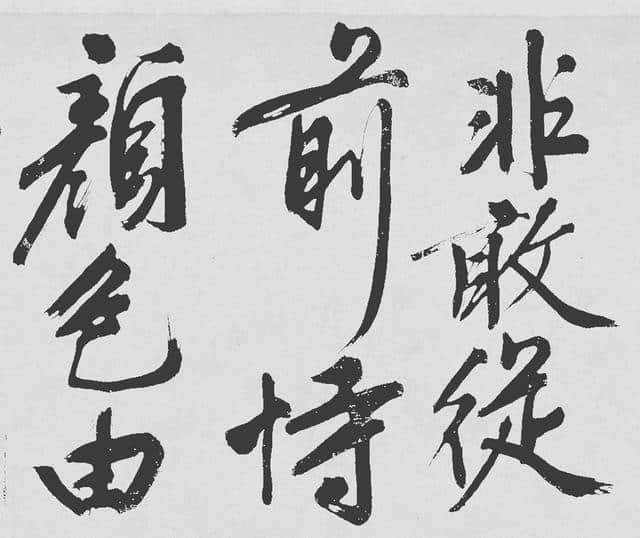 非敢從
前恃
顔色由